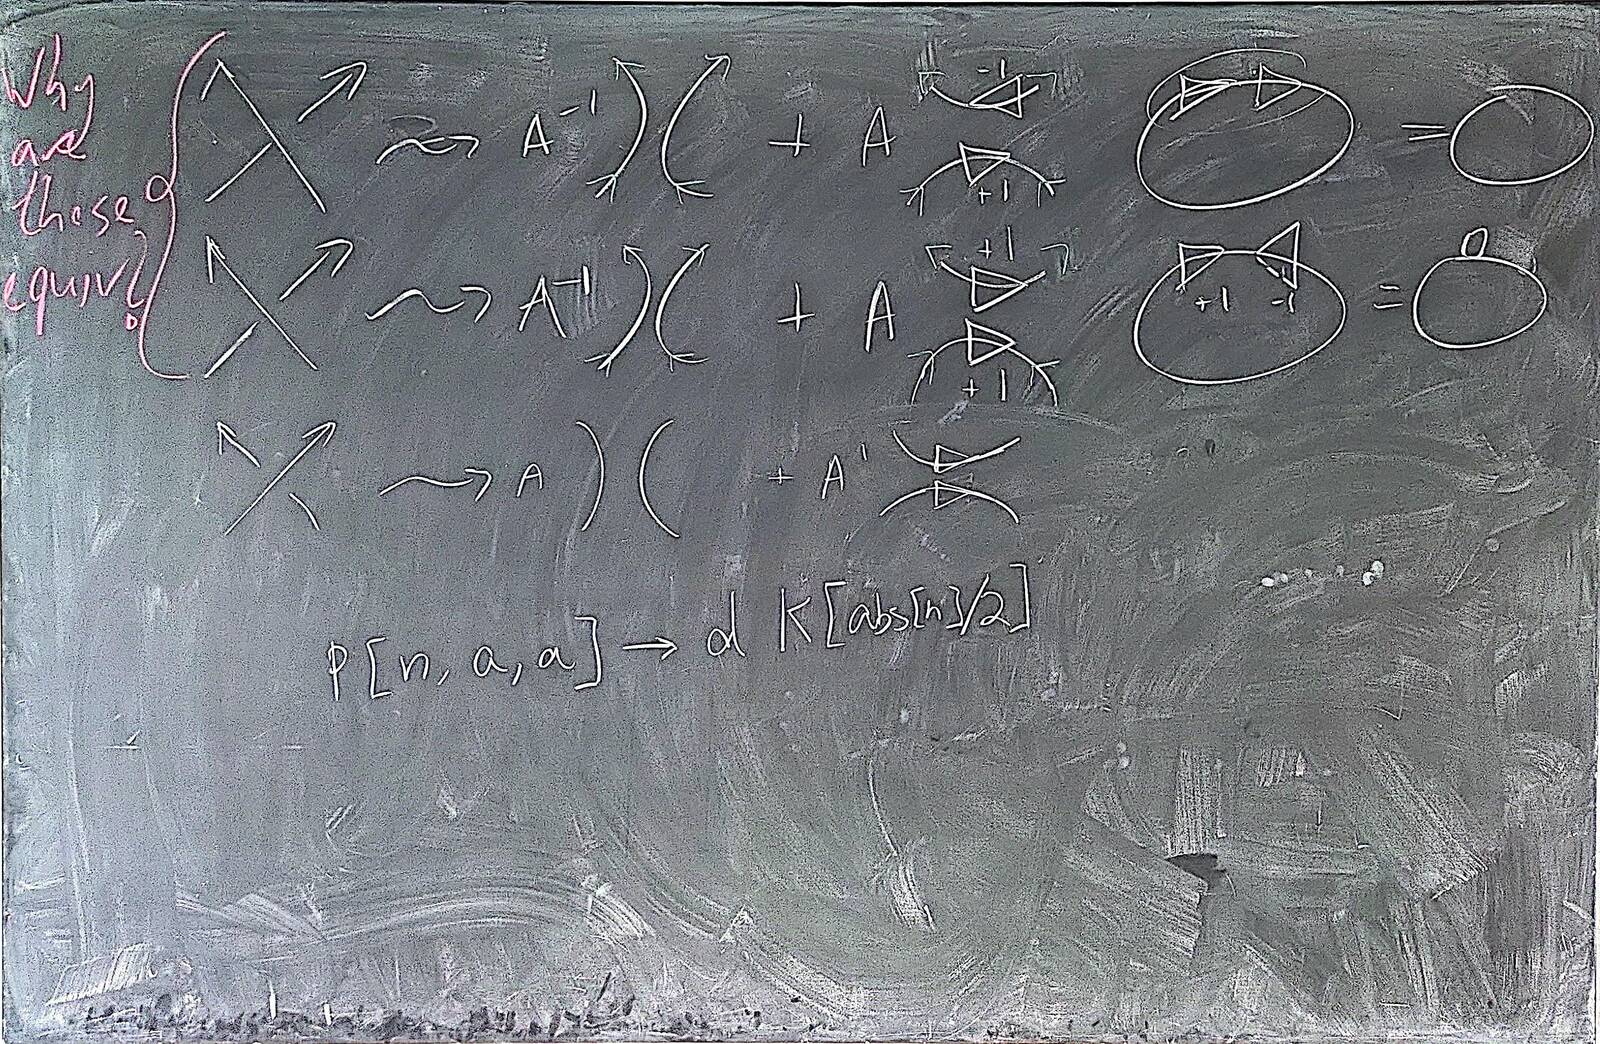 Why are these equiv?
A⁻¹ + A -1 +1 =
A⁻¹ + A +1 +1 +1 -1 =
A + A⁻¹
P[n, a, a] → d K[abs[n]/2]